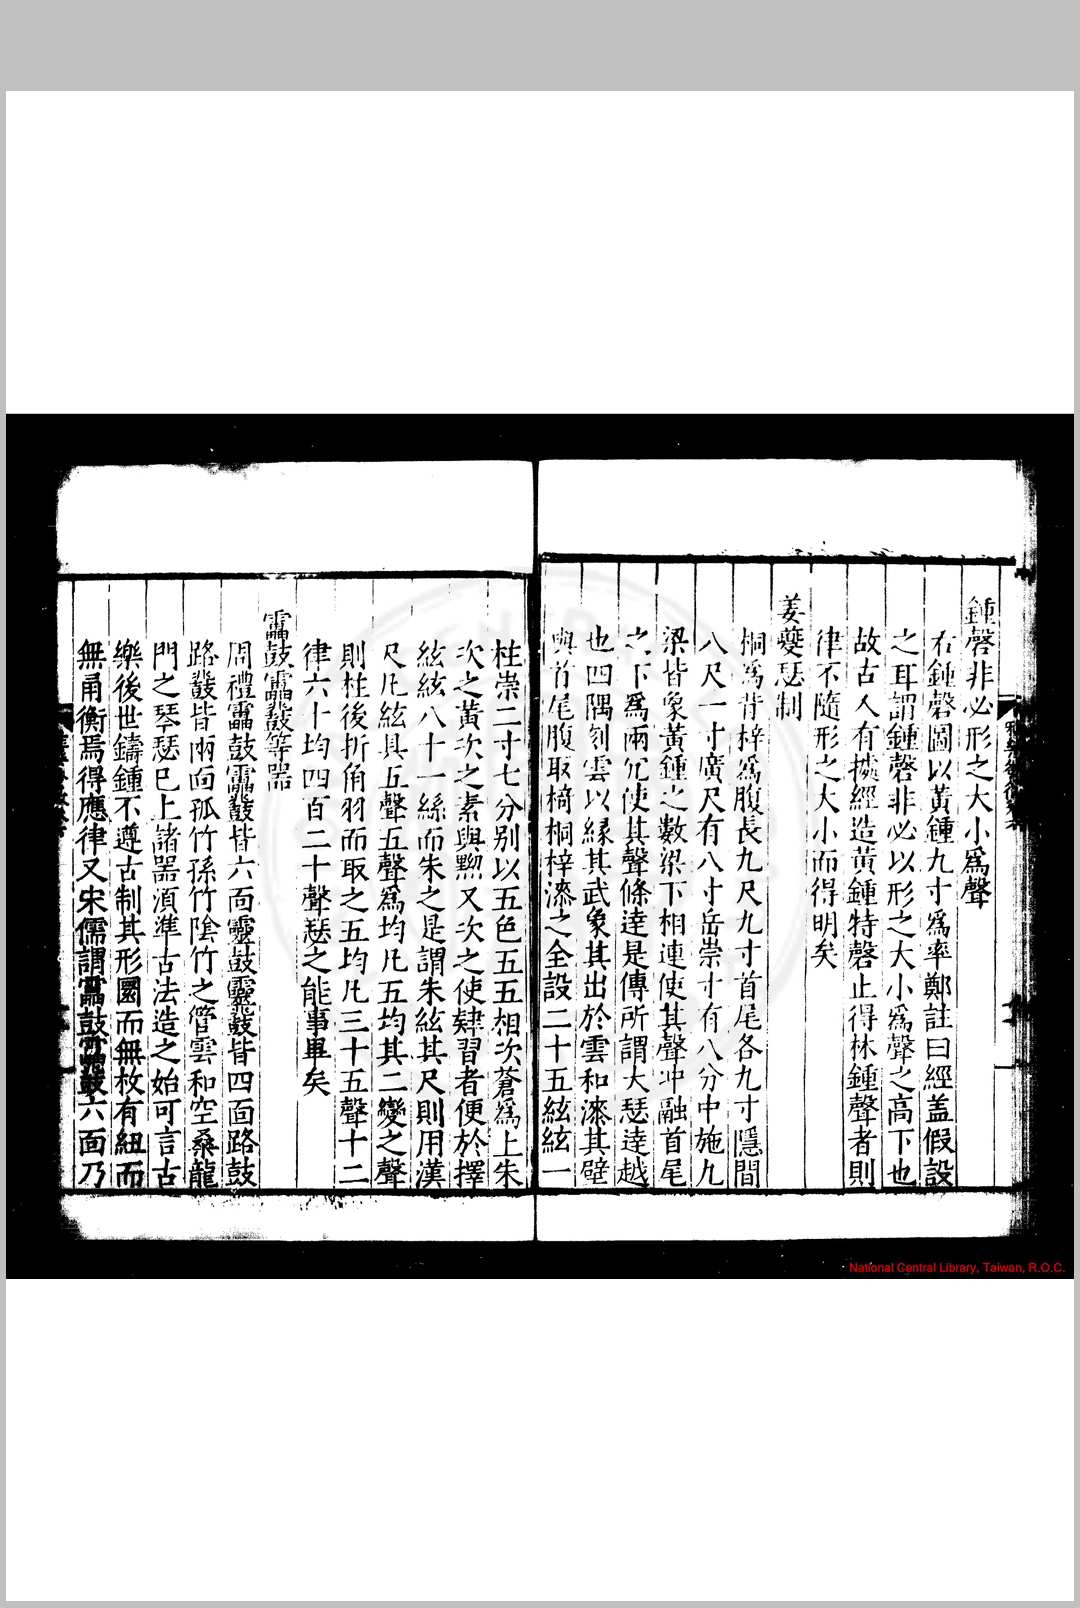 鍾磬非必形之大小爲聲
右鍾磬圖以黃鍾九寸爲率鄭註曰經蓋假設
之耳謂鍾磬非必以形之大小爲聲之高下也
故古人有據經造黃鍾特磬止得林鍾聲者則
律不隨形之大小而得明矣
姜夔瑟制
桐爲背梓爲腹長九尺九寸首尾各九寸隱間
八尺一寸廣尺有八寸岳崇寸有八分中施九
梁皆象黃鍾之數梁下相連使其聲冲融首尾
之下爲兩穴使其聲條達是傳所謂大瑟達越
也四隅刻雲以緣其武象其出於雲和漆其壁
與首尾腹取椅桐梓漆之全設二十五絃絃一
柱崇二寸七分別以五色五五相次蒼爲上朱
次之黃次之素與黝又次之使肄習者便於擇
絃絃八十一絲而朱之是謂朱絃其尺則用漢
尺凡絃具五聲五聲爲均凡五均其二變之聲
則柱後折角羽而取之五均凡三十五聲十二
律六十均四百二十聲瑟之能事畢矣
靁鼓靁鼗等器
周禮靁鼓靁鼗皆六面靈鼓靈鼗皆四面路鼓
路鼗皆兩面孤竹孫竹陰竹之管雲和空桑龍
門之琴瑟已上諸器湏準古法造之始可言古
樂後世鑄鍾不遵古制其形圜而無枚有紐而
無甬衡焉得應律又宋儒謂靁鼓靁鼗六面乃
National Central Library, Taiwan, R.O.C.